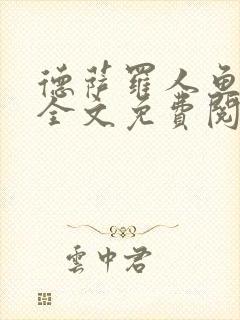 德薩羅人魚
全文免費閱
雲中君